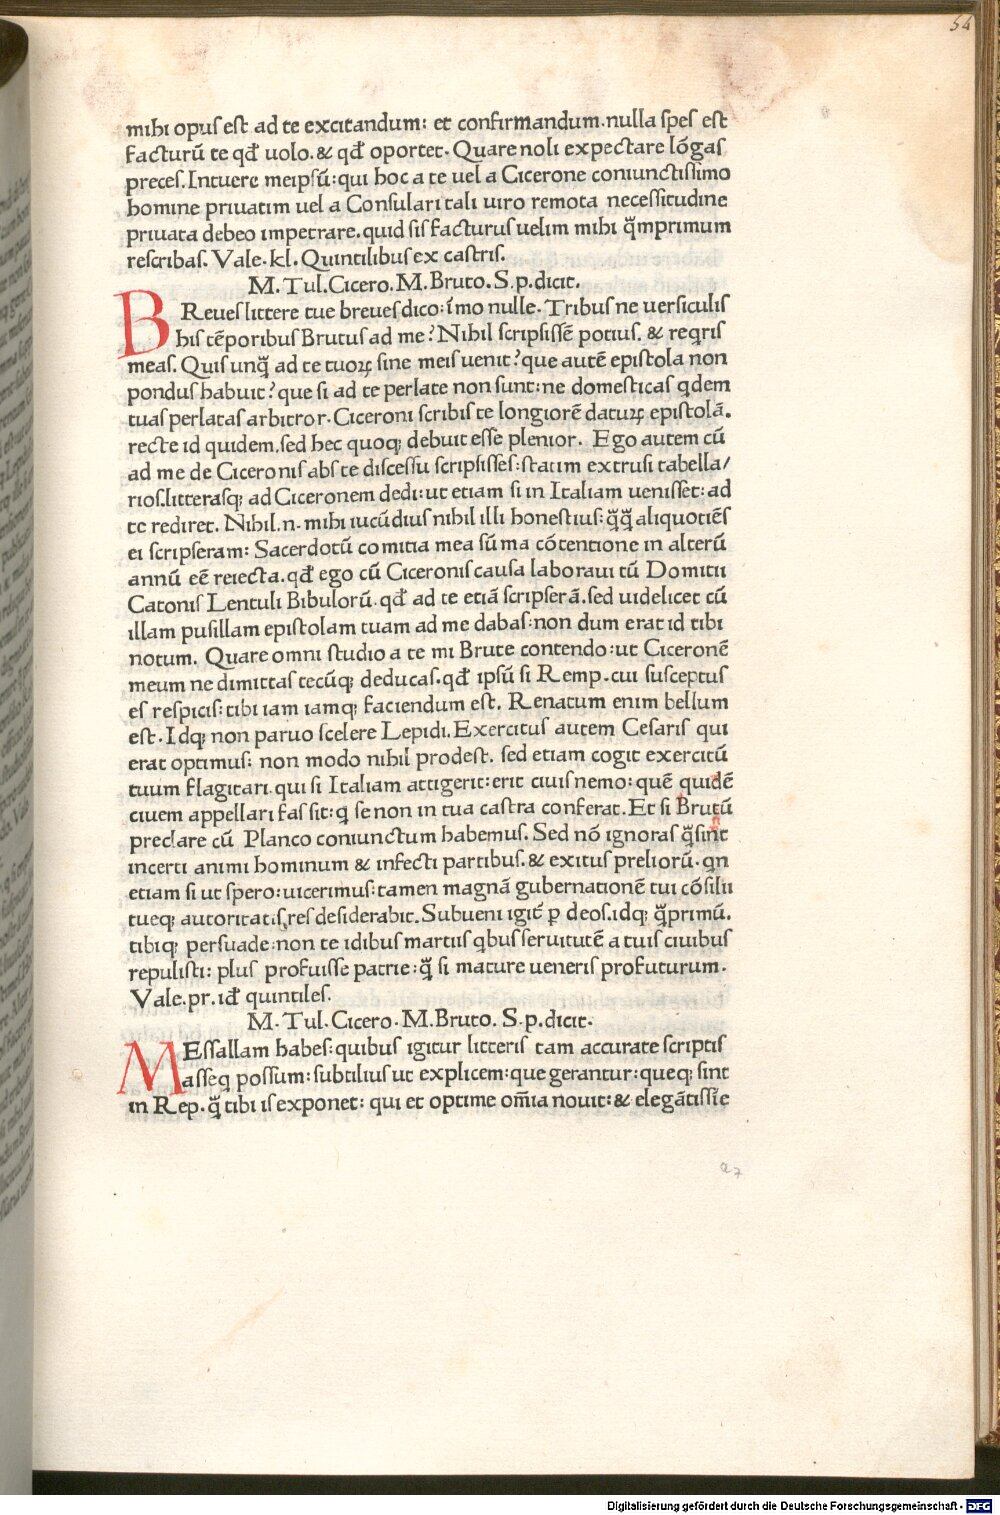 54
mihi opus est ad te excitandum: et confirmandum.nulla spes est
facturū te qđ uolo.& qđ oportet. Quare noli expectare lōgas
preces.Intuere meipsū:qui hoc a te uel a Cicerone coniunctissimo
homine priuatim uel a Consulari tali uiro remota necessitudine
priuata debeo impetrare.quid sis facturus uelim mihi q̄mprimum
rescribas. Vale.kl. Quintilibus ex castris.
M. Tul.Cicero.M.Bruto.S.p.dicit.
BReues littere tue breues dico:īmo nulle. Tribus ne uersiculis
his tēporibus Brutus ad me? Nihil scripsissē potius. & reqris
meas. Quis unq̄ ad te tuoꝝ sine meis uenit? que autē epistola non
pondus habuit? que si ad te perlate non sunt:ne domesticas qdem
tuas perlatas arbitror. Ciceroni scribis te longiorē datuꝝ epistolā.
recte id quidem.sed hec quoq; debuit esse plenior. Ego autem cū
ad me de Ciceronis abs te discessu scripsisses:statim extrusi tabella/
rios.litterasq; ad Ciceronem dedi:ut etiam si in Italiam uenisset:ad
te rediret. Nihil.n. mihi iucūdius nihil illi honestius:q̄q̄ aliquotiēs
ei scripseram: Sacerdotū comitia mea sūma cōtentione in alterū
annū eē reiecta.qđ ego cū Ciceronis causa laboraui tū Domitii
Catonis Lentuli Bibulorū.qđ ad te etiā scripserā.sed uidelicet cū
illam pusillam epistolam tuam ad me dabas:non dum erat id tibi
notum. Quare omni studio a te mi Brute contendo:ut Ciceronē
meum ne dimittas tecūq; deducas.qđ ipsū si Remp.cui susceptus
es respicis:tibi iam iamq; faciendum est. Renatum enim bellum
est.Idq; non paruo scelere Lepidi.Exercitus autem Cesaris qui
erat optimus: non modo nihil prodest. sed etiam cogit exercitū
tuum flagitari.qui si Italiam attigerit:erit ciuis nemo:quē quidē
ciuem appellari fas sit:q se non in tua castra conferat.Et si Brutū
preclare cū Planco coniunctum habemus. Sed nō ignoras q̄ sint
incerti animi hominum & infecti partibus.& exitus preliorū.qn
etiam si ut spero:uicerimus:tamen magnā gubernationē tui cōsilii
tueq; autoritatis,res desiderabit.Subueni igit̄ ꝑ deos.idq; q̄primū.
tibiq; persuade:non te idibus martiis qbus seruitutē a tuis ciuibus
repulisti: plus profuisse patrie:q̄ si mature ueneris profuturum.
Vale.pr.iđ quintiles.
M.Tul.Cicero.M.Bruto. S.p.dicit.
MEssallam habes:quibus igitur litteris tam accurate scriptis
asseq possum:subtilius ut explicem:que gerantur:queq; sint
in Rep.q̄ tibi is exponet: qui et optime om̄ia nouit:& elegātissīe
Digitalisierung gefördert durch die Deutsche Forschungsgemeinschaft - DFG